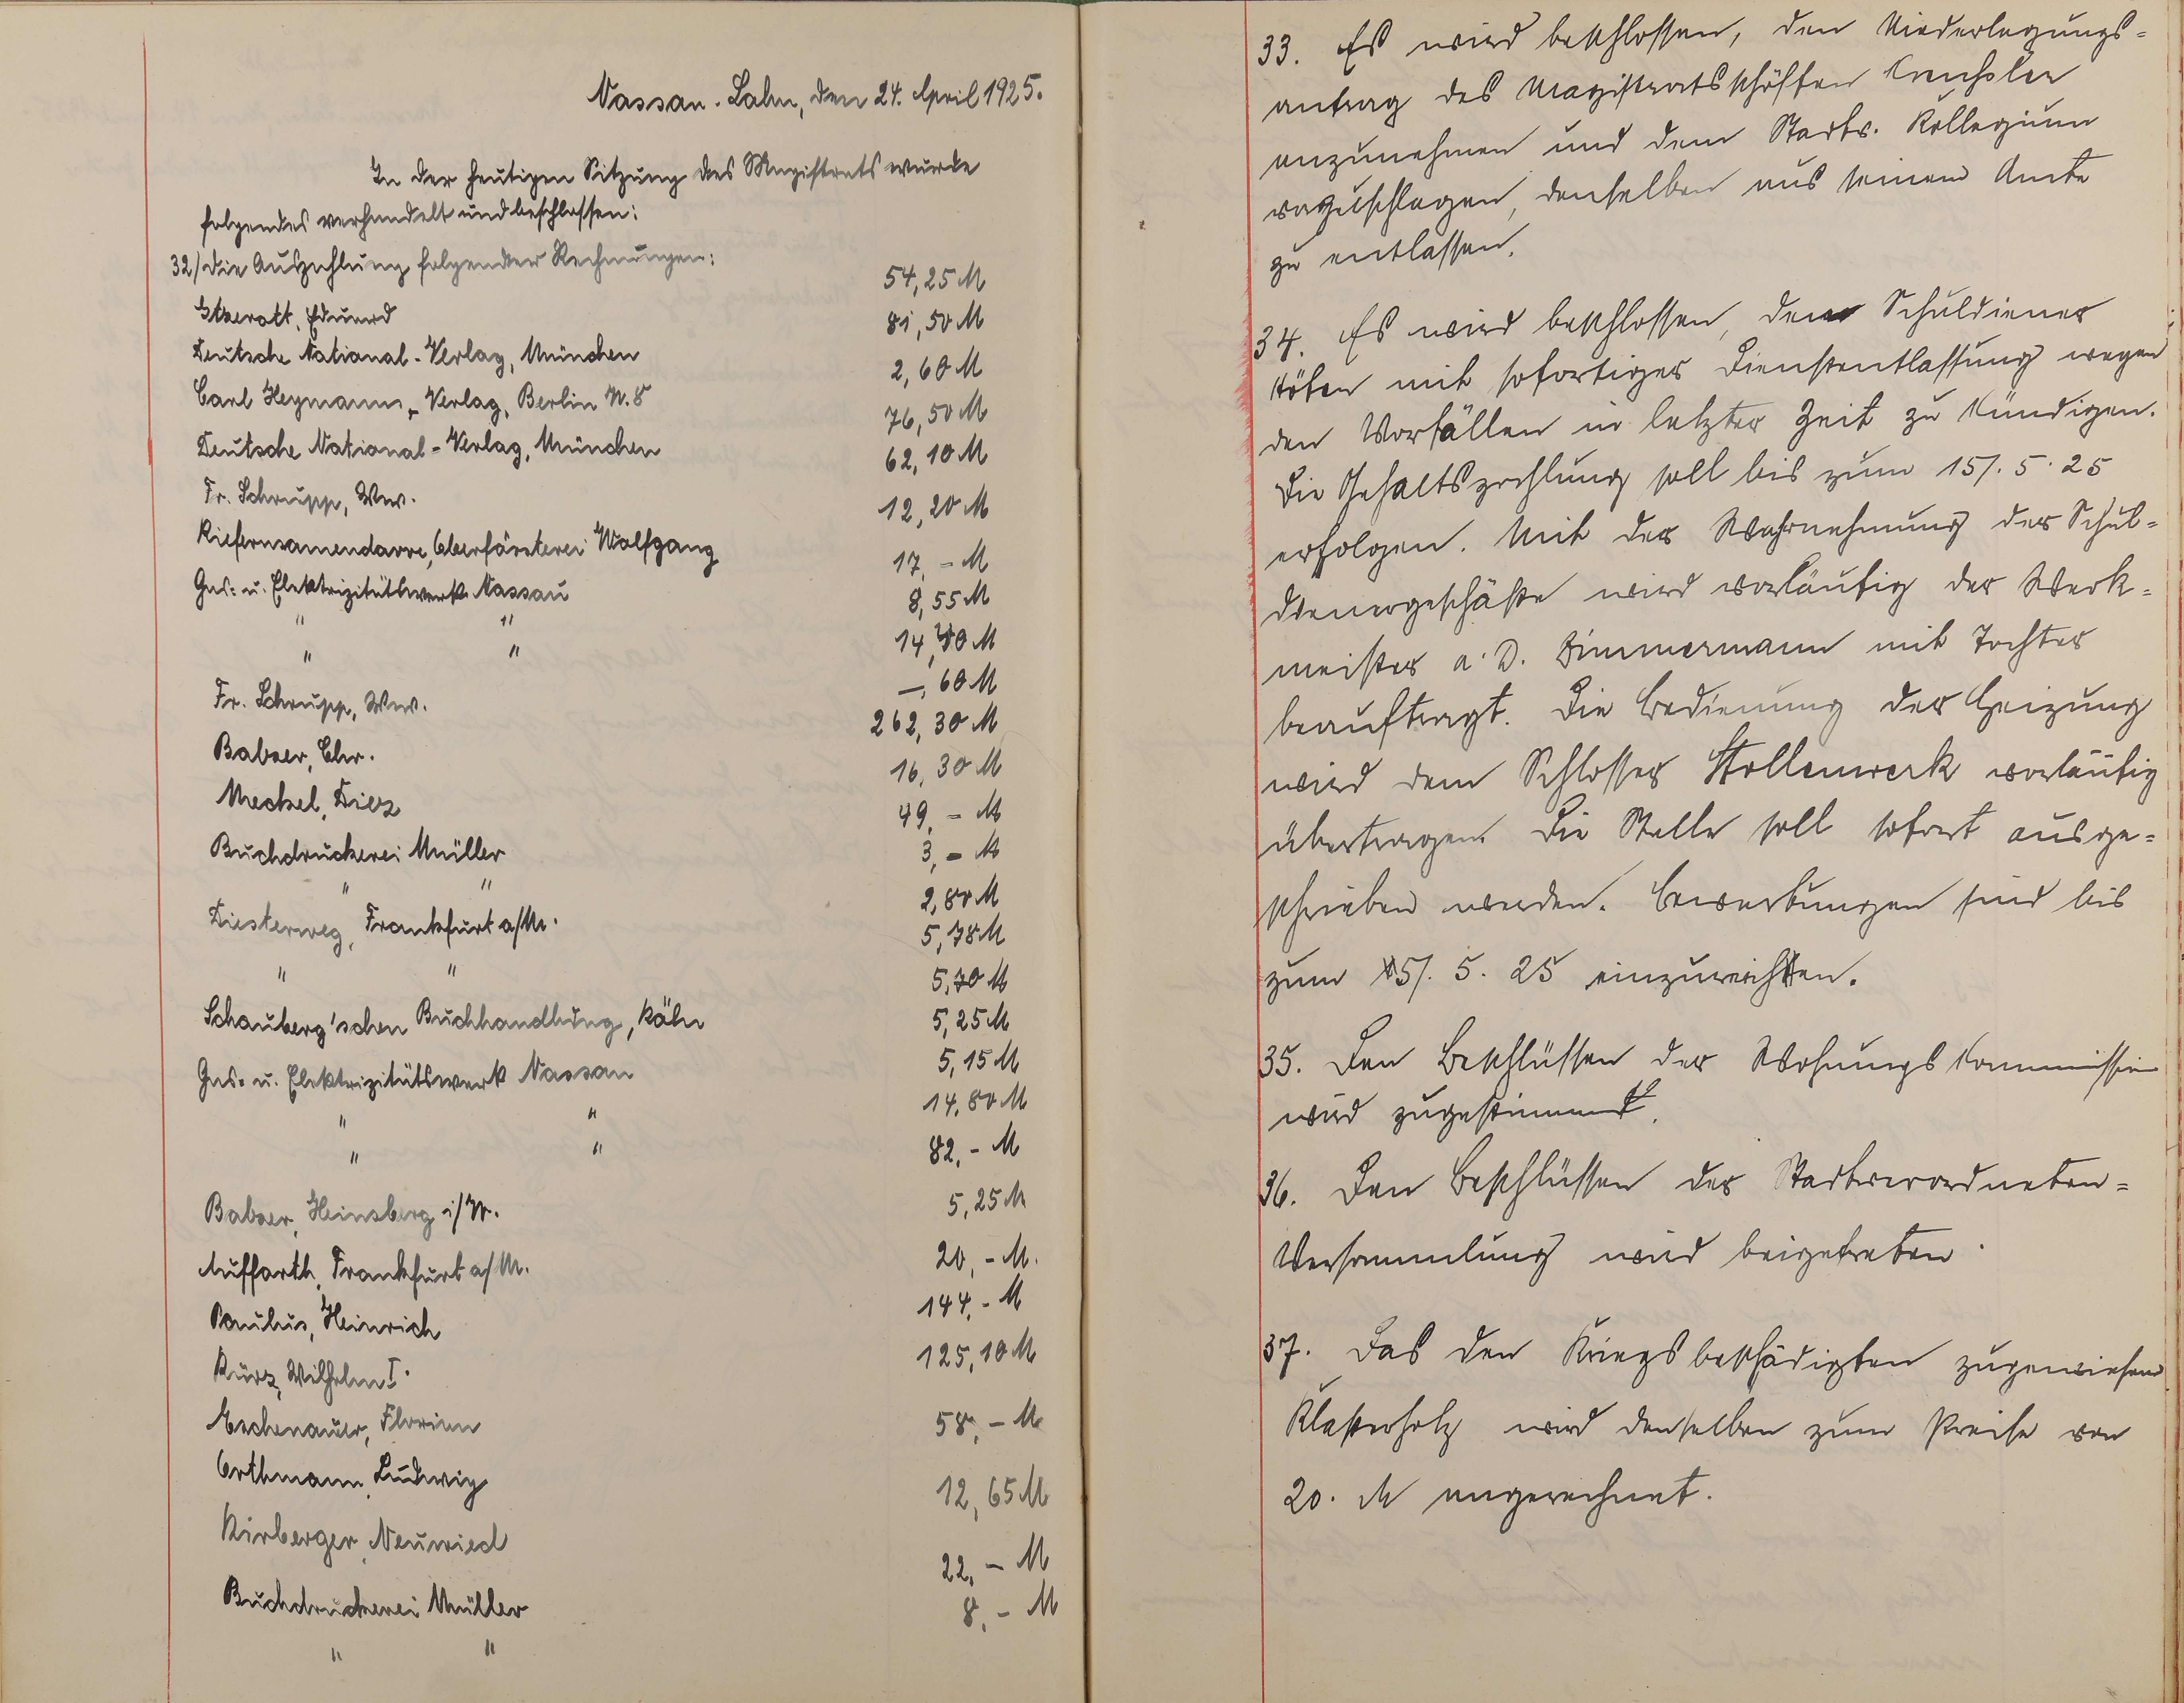 Nassau-Lahn, den 24. April 1925.
In der heutigen Sitzung des Magistrats wurde
folgendes verhandelt und beschlossen:
32/ Die Auszahlung folgender Rechnungen:
Eduard 54,25 M
Deutsche National-Verlag, München 81,50 M
Carl Heymanns-Verlag, Berlin W. 8 2,60 M
Deutsche National-Verlag, München 76,50 M
Fr. Schrupp, Ww. 62,10 M
Kiefernsamendarre, Oberförsterei Wolfgang 12,20 M
Gas- u. Elektrizitätswerk Nassau 17,- M
" " 8,55 M
" " M
Fr. Schrupp, Ww. -,60 M
Babser, Chr. 262,30 M
Meckel, Diez 16,30 M
Buchdruckerei Müller 49,- M
" " 3,- M
Diesterweg, Frankfurt a/M. 2,80 M
" " 5,78 M
Schauberg'schen Buchhandlung, Köln 5,70 M
Gas- u. Elektrizitätswerk Nassau 5,25 M
" " 5,15 M
" " 14,80 M
Babser, Heinsberg i/W. 82,- M
Auffarth, Frankfurt a/M. 5,25 M
Paulus, Heinrich 20,- M.
Kurz, Wilhelm I. 144,- M
Eschenauer, Florian 125,10 M
Orthmann, Ludwig 58,- M
Kirberger, Neuwied 12,65 M
Buchdruckerei Müller 22,- M
" " 8,- M
33. Es wird beschlossen, den Niederlegungs=
antrag des Magistratsschöffen
anzunehmen und dem Stadtv. Kollegium
vorzuschlagen, denselben aus seinem Amte
zu entlassen.
34. Es wird beschlossen, dem Schuldiener
mit sofortiger Dienstentlassung wegen
den Vorfällen in letzter Zeit zu kündigen.
Die Gehaltszahlung soll bis zum 15/. 5. 25
erfolgen. Mit der Wahrnehmung der Schul=
dienergeschäfte wird vorläufig der Werk=
meister a. D. Zimmermann mit Tochter
beauftragt. Die Bedienung der Heizung
wird dem Schlosser Stollenwerk vorläufig
übertragen. Die Stelle soll sofort ausge=
schrieben werden. Bewerbungen sind bis
zum 15/. 5. 25 einzureichen.
35. Den Beschlüssen der Wohnungskommission
wird zugestimmt.
36. Den Beschlüssen der Stadtverordneten=
Versammlung wird beigetreten.
37. Das den Kriegsbeschädigten zugewiesene
Klafterholz wird denselben zum Preise von
20. M angerechnet.